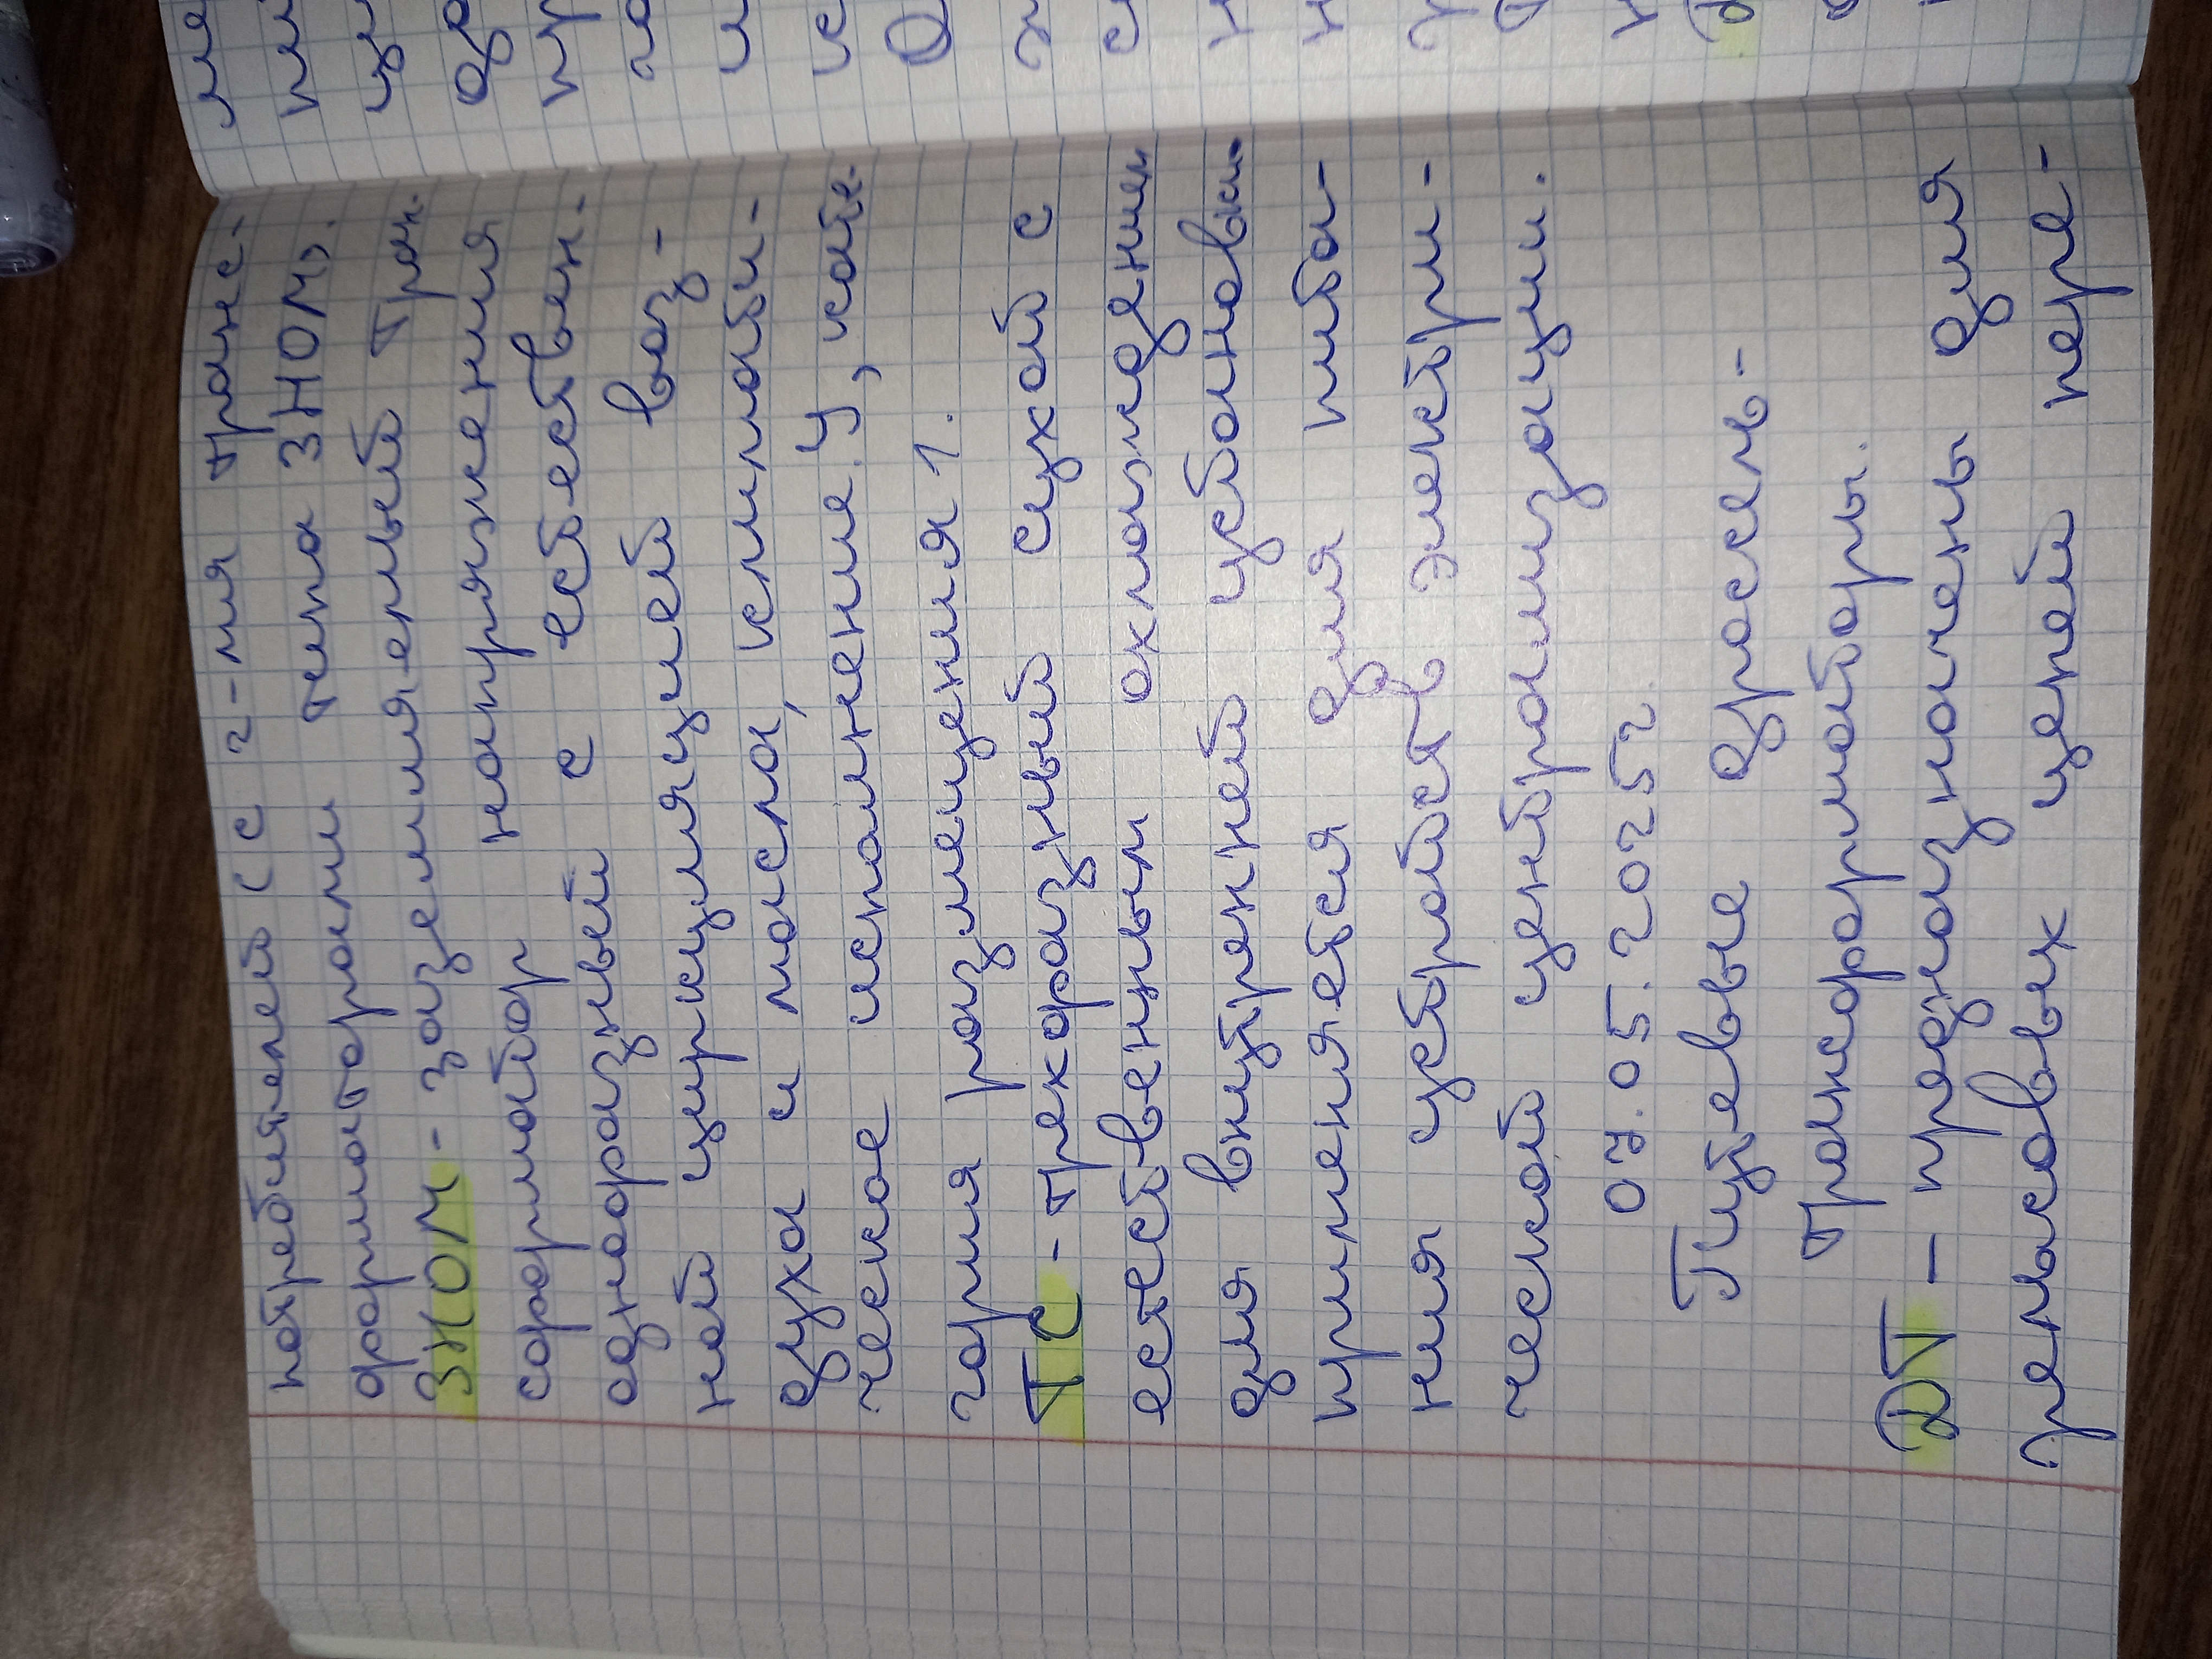 потребителей (с г-мя транс-
форматорами типа ЗНОМ).
ЗНОМ - заземляемый тран-
сформатор напряжения
однофазный с естествен-
ной циркуляцией воз-
духа и масла, климати-
ческое исполнение У, кате-
гория размещения 1.
ТС - трёхфазный сухой с
естественным охлаждением
для внутренней установки.
применяется для пита-
ния устройств электри-
ческой централизации.
07.05.2025г.
Путевые дроссель-
трансформаторы.
ДТ - предназначены для
рельсовых цепей пере-